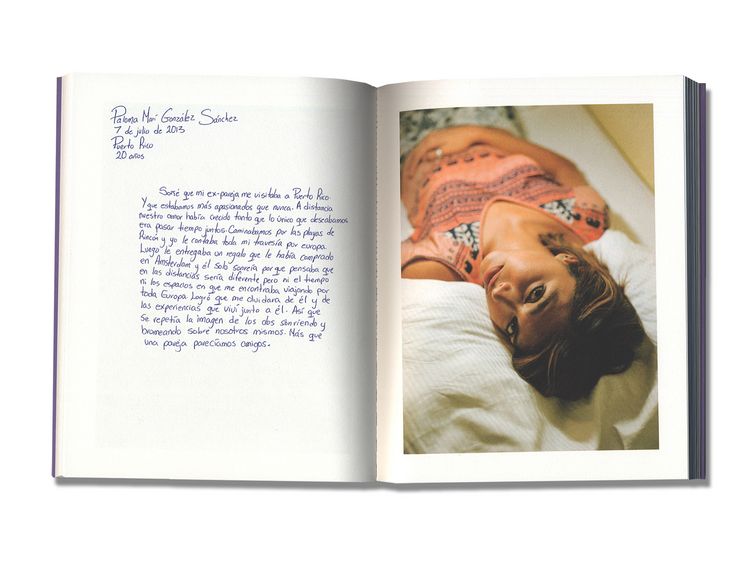 Paloma Mari González Sánchez
7 de julio de 2013
Puerto Rico
20 años
Soñé que mi ex-pareja me visitaba a Puerto Rico
Y que estábamos más apasionados que nunca. A distancia
nuestro amor había crecido tanto que lo único que deseábamos
era pasar tiempo juntos. Caminábamos por las playas de
Rincón y yo le contaba toda mi travesía por europa.
Luego le entregaba un regalo que le había comprado
en Amsterdam y él solo sonreía por que pensaba que
en las distancias sería diferente pero ni el tiempo
ni los espacios en que me encontraba viajando por
toda Europa. Logró que me olvidara de él y de
las experiencias que viví junto a él. Así que
se repetía la imagen de los dos sonriendo y
bromeando sobre nosotros mismos. Más que
una pareja parecíamos amigos.